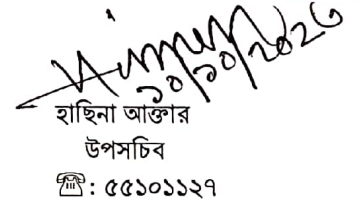 ১০/১০/২০২৩
হাছিনা আক্তার
উপসচিব
☎: ৫৫১০১১২৭